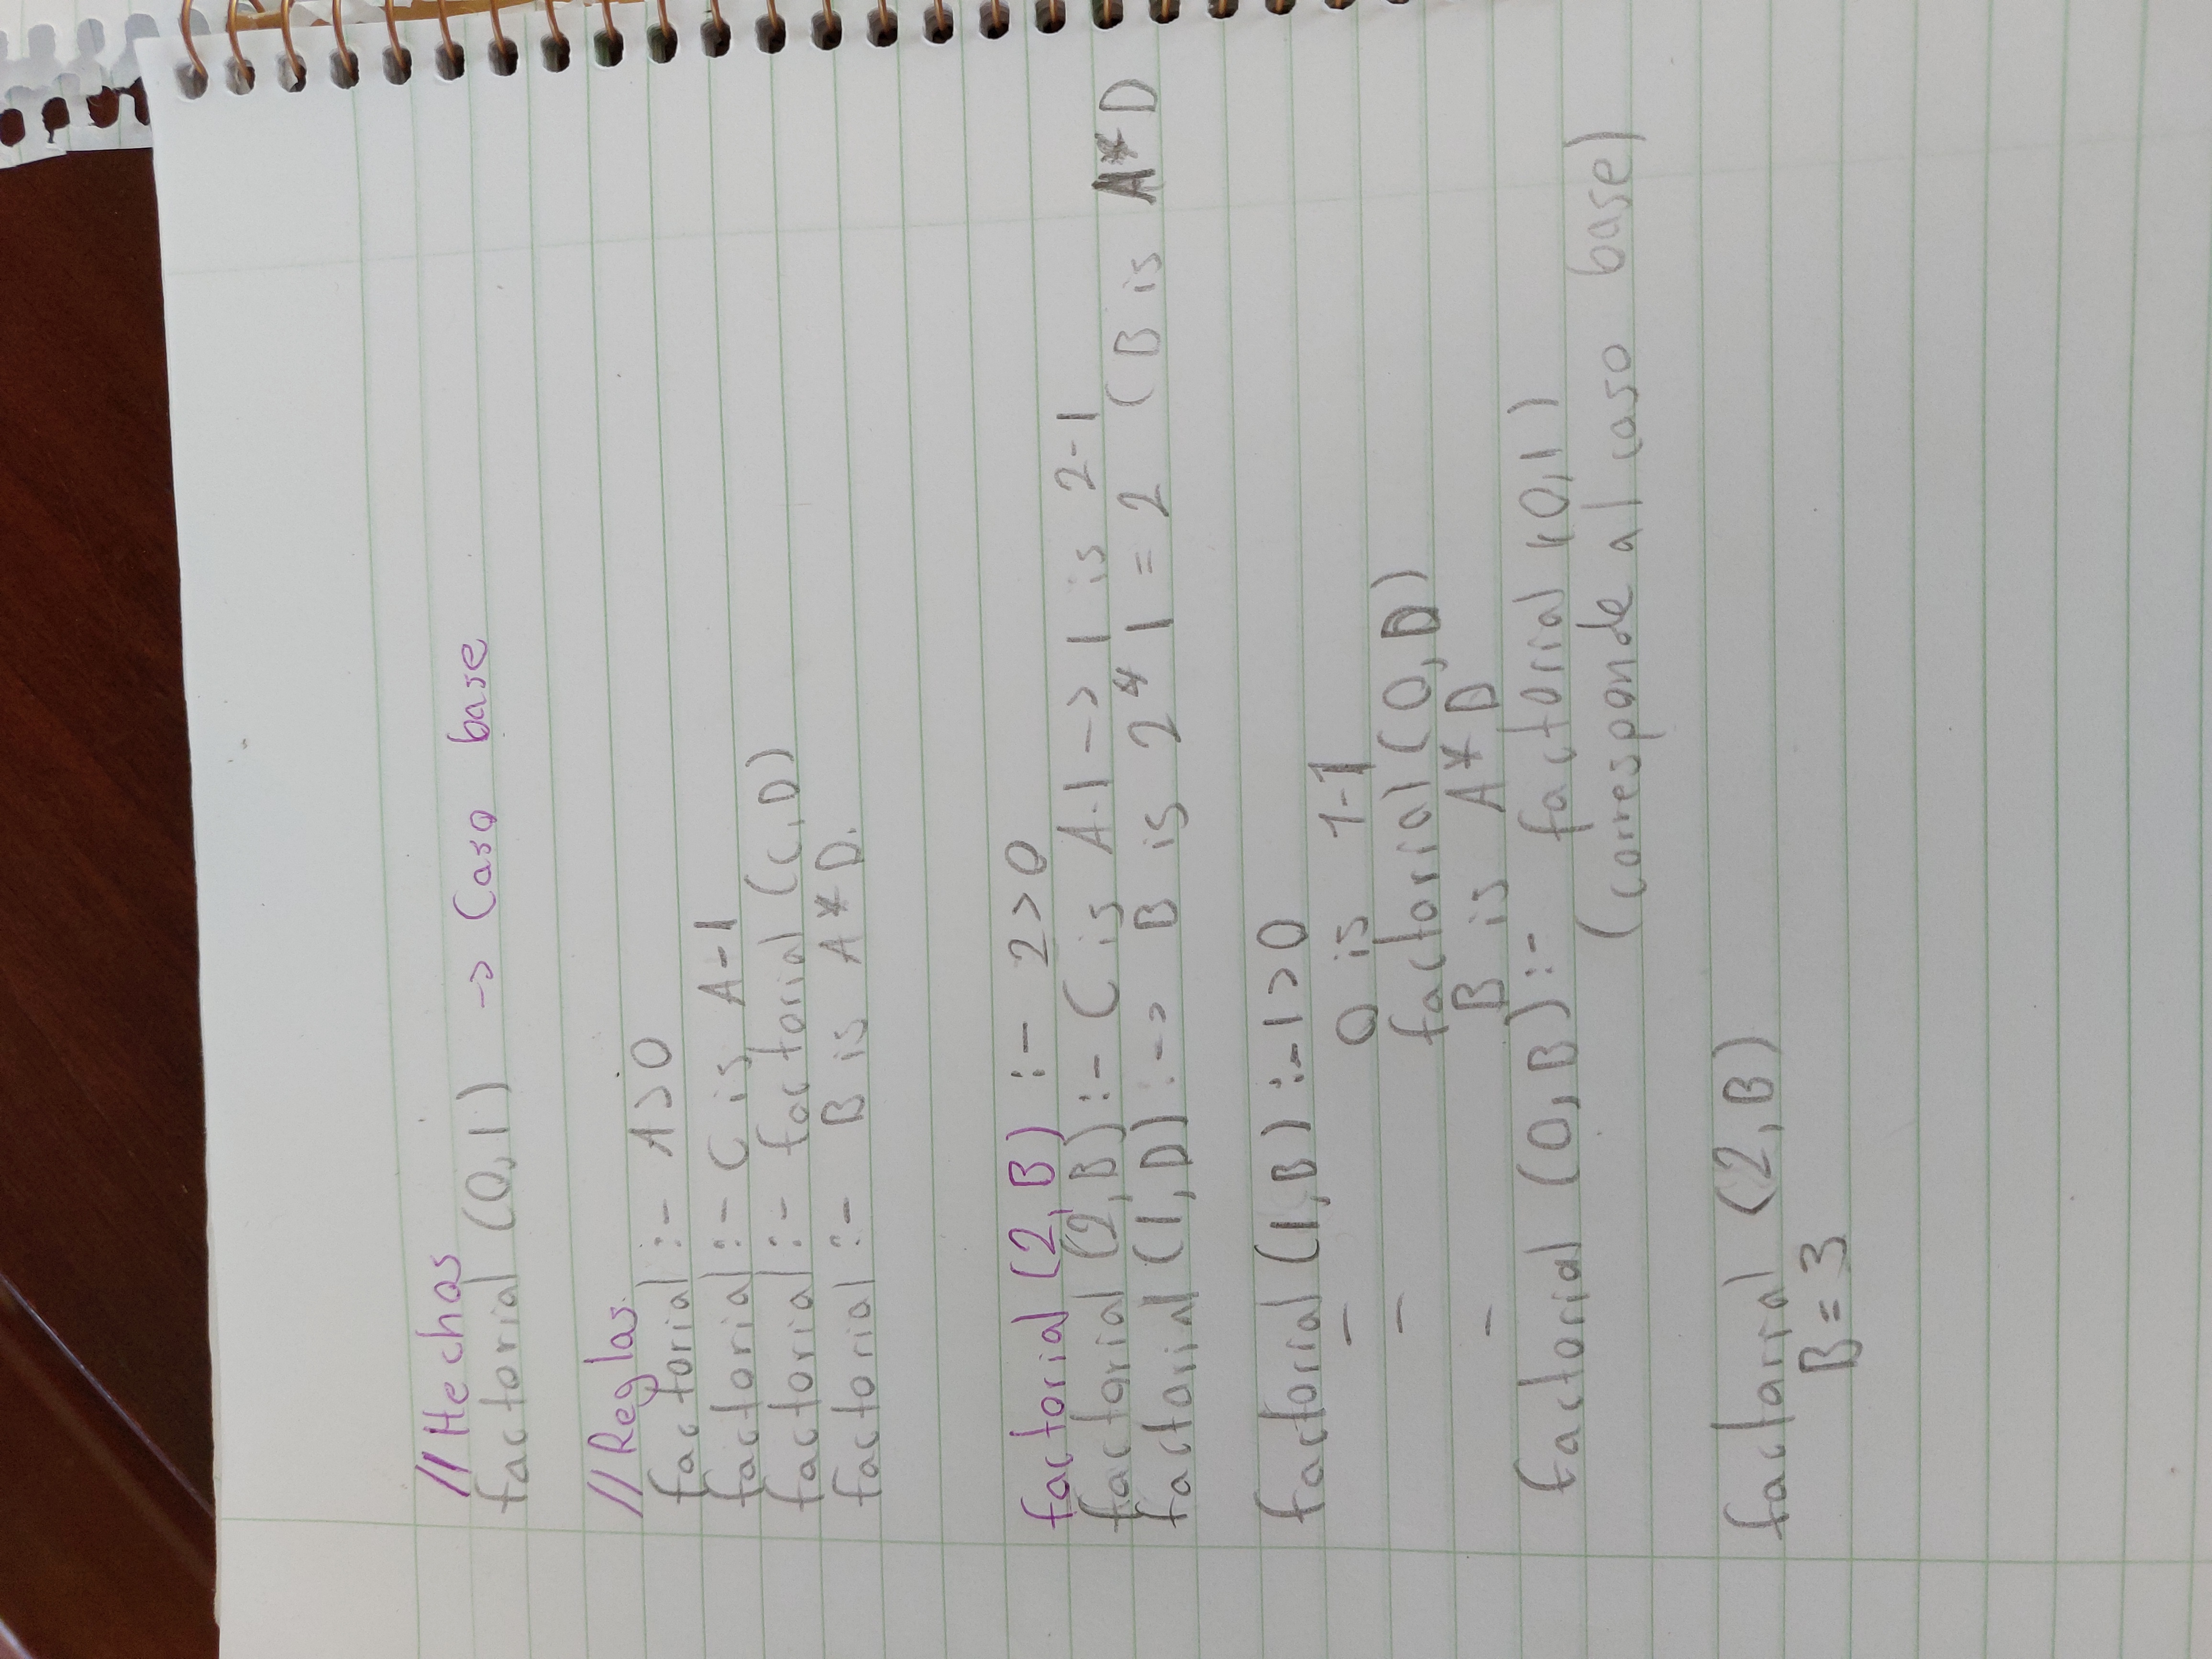 //Hechos
factorial (0,1) -> Caso base
//Reglas.
factorial :- A>0
factorial :- C is A-1
factorial :- factorial (C,D)
factorial :- B is A*D.
factorial (2,B) :- 2>0
factorial (2,B) :- C is A-1 -> 1 is 2-1
factorial (1,D) :-> B is 2*1 = 2 (B is A*D
factorial (1,B) :- 1>0
- 0 is 1-1
- factorial (0,D)
- B is A*D
factorial (0,B) :- factorial (0,1)
(corresponde al caso base)
factorial (2,B)
B = 3